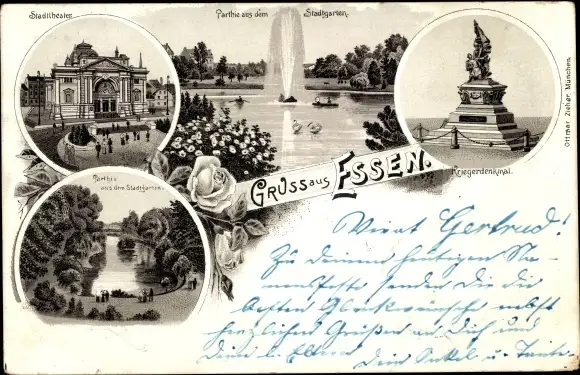 Stadttheater.
Parthie aus dem Stadtgarten.
Ottmar Zieher, München.
Kriegerdenkmal.
Parthie
aus dem Stadtgarten.
GRUSS AUS ESSEN.
Vivat Gertrud!
Zu Deinem heutigen Na-
mensfeste senden Dir die
besten Glückwünsche nebst
herzlichen Grüßen an Dich und
Deine l. Eltern Dein Onkel u. Tante.